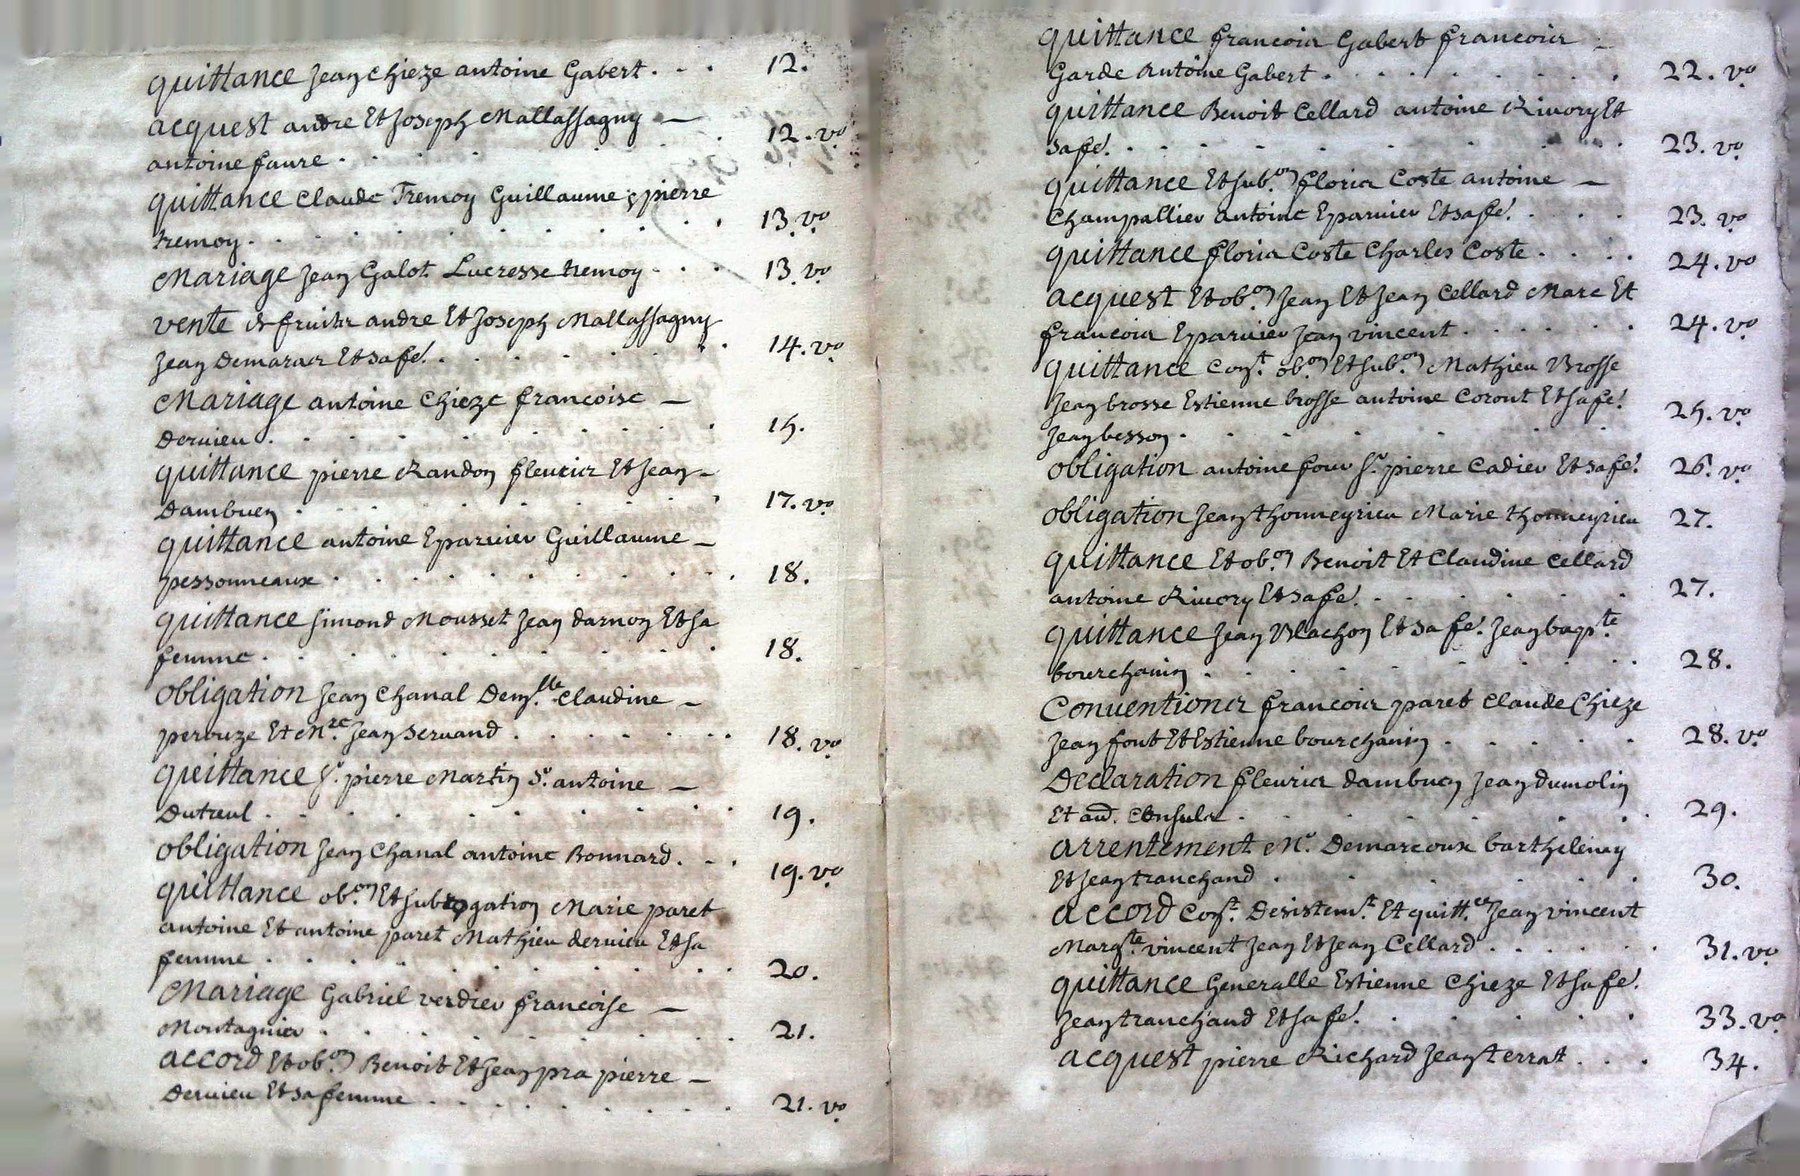 quittance Jean Chieze antoine Gabert . . . 12.
acquest andre Et Joseph Mallassagny —
antoine faure . . . . . . . 12. vo
quittance Claude Tremoy Guillaume & pierre
tremoy . . . . . . . . 13. vo
Mariage Jean Galot Lucresse tremoy . . . 13. vo
vente de fruits andre Et Joseph Mallassagny
Jean Demarais Et sa fe. . . . . . . 14. vo
Mariage antoine Chieze francoise —
Dervieu . . . . . . . . 15.
quittance pierre Randon fleurie Et Jean —
Dambuen . . . . . . . . 17. vo
quittance antoine Eparvier Guillaume —
pessonneaux . . . . . . . . 18.
quittance simond Mousset Jean darnon Et sa
femme . . . . . . . . 18.
obligation Jean Chanal Demlle Claudine —
perouze Et Mre Jean Servand . . . . . . 18. vo
quittance Sr. pierre Martin Sr. antoine —
Dutreul . . . . . . . . 19.
obligation Jean Chanal antoine Bonnard . . . 19. vo
quittance obon Et subrogation Marie paret
antoine Et antoine paret Mathieu dervieu Et sa
femme . . . . . . . . 20.
Mariage Gabriel verdier francoise —
Montagnier . . . . . . . . 21.
accord Et obon Benoit Et Jean pra pierre —
Dervieu Et sa femme . . . . . . . 21. vo
quittance francois Gabert francois —
Garde Antoine Gabert . . . . . . . 22. vo
quittance Benoit Cellard antoine Rivory Et
sa fe. . . . . . . . 23. vo
quittance Et subon floris Coste antoine —
Champallier antoine Eparvier Et sa fe. . . . 23. vo
quittance floris Coste Charles Coste . . . . 24. vo
acquest Et obon Jean Et Jean Cellard Marc Et
francois Eparvier Jean vincent . . . . . 24. vo
quittance Const. obon Et subon Mathieu Brosse
Jean brosse Estienne brosse antoine Coront Et sa fe.
Jean besson . . . . . . . 25. vo
obligation antoine four Sr. pierre Cadier Et sa fe. 26. vo
obligation Jean thonneyrieu Marie thonneyrieu 27.
quittance Et obon Benoit Et Claudine Cellard
antoine Rivory Et sa fe. . . . . . . 27.
quittance Jean Vlachon Et sa fe. Jean bapte
bourchanin . . . . . . . 28.
Conventions francois paret Claude Chieze
Jean font Et Estienne bourchanin . . . . . 28. vo
Declaration fleurie dambuen Jean dumolin
Et aud. Consuls . . . . . . . 29.
arrentement Mr. Demarcoux barthelemy
Et Jean tranchand . . . . . . 30.
accord Const. Desistemt. Et quittce Jean vincent
Margte vincent Jean Et Jean Cellard . . . . . 31. vo
quittance Generalle Estienne Chieze Et sa fe.
Jean tranchand Et sa fe. . . . . . . 33. vo
acquest pierre Richard Jean terrat . . . 34.